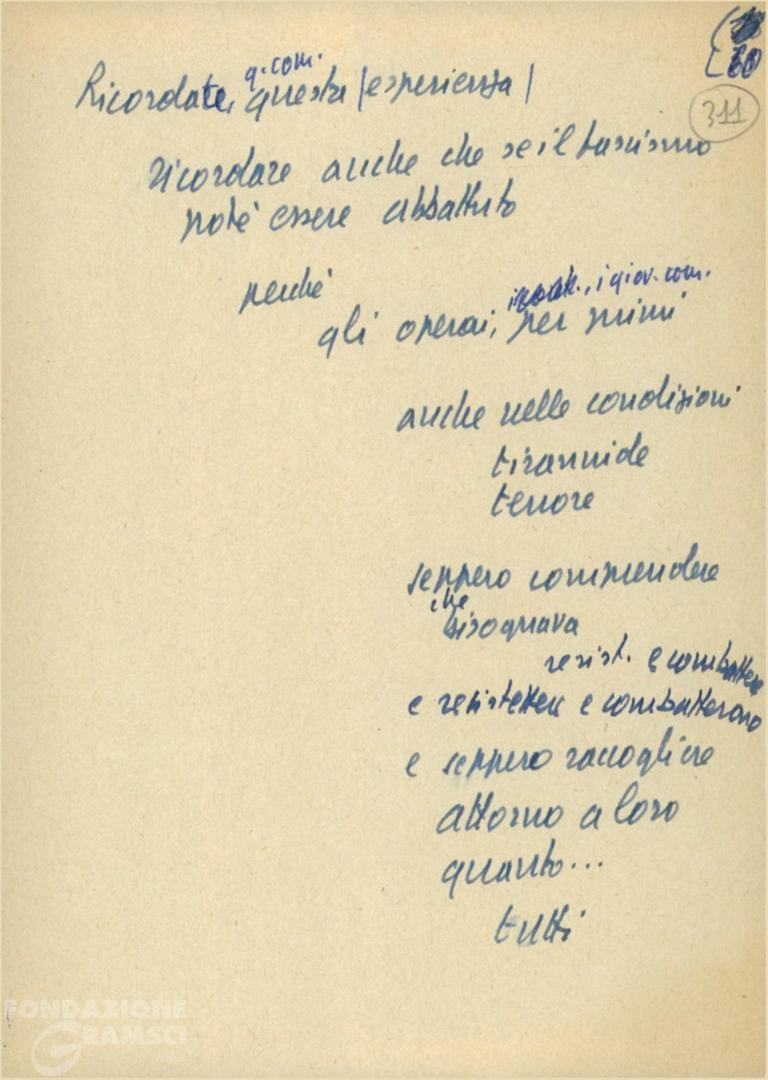 60
311
g. com.
Ricordate, questa |esperienza|
ricordare anche che se il fascismo
poté essere abbattuto
perché
i giov. com.
gli operai, per primi
anche nelle condizioni
tirannide
terrore
seppero comprendere
che
bisognava
resist. e combattere
e resistettero e combatterono
e seppero raccogliere
attorno a loro
quanto...
tutti
FONDAZIONE
GRAMSCI